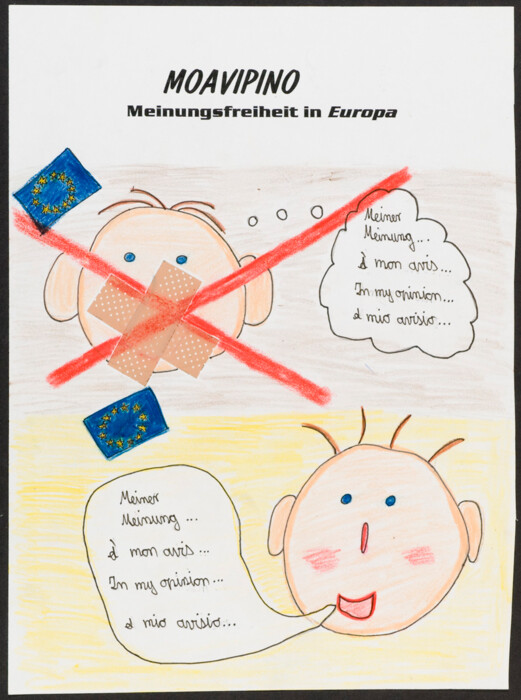 MOAVIPINO
Meinungsfreiheit in Europa
Meiner
Meinung...
À mon avis...
In my opinion...
A mio avisio...
Meiner
Meinung ...
À mon avis ...
In my opinion...
A mio avisio...